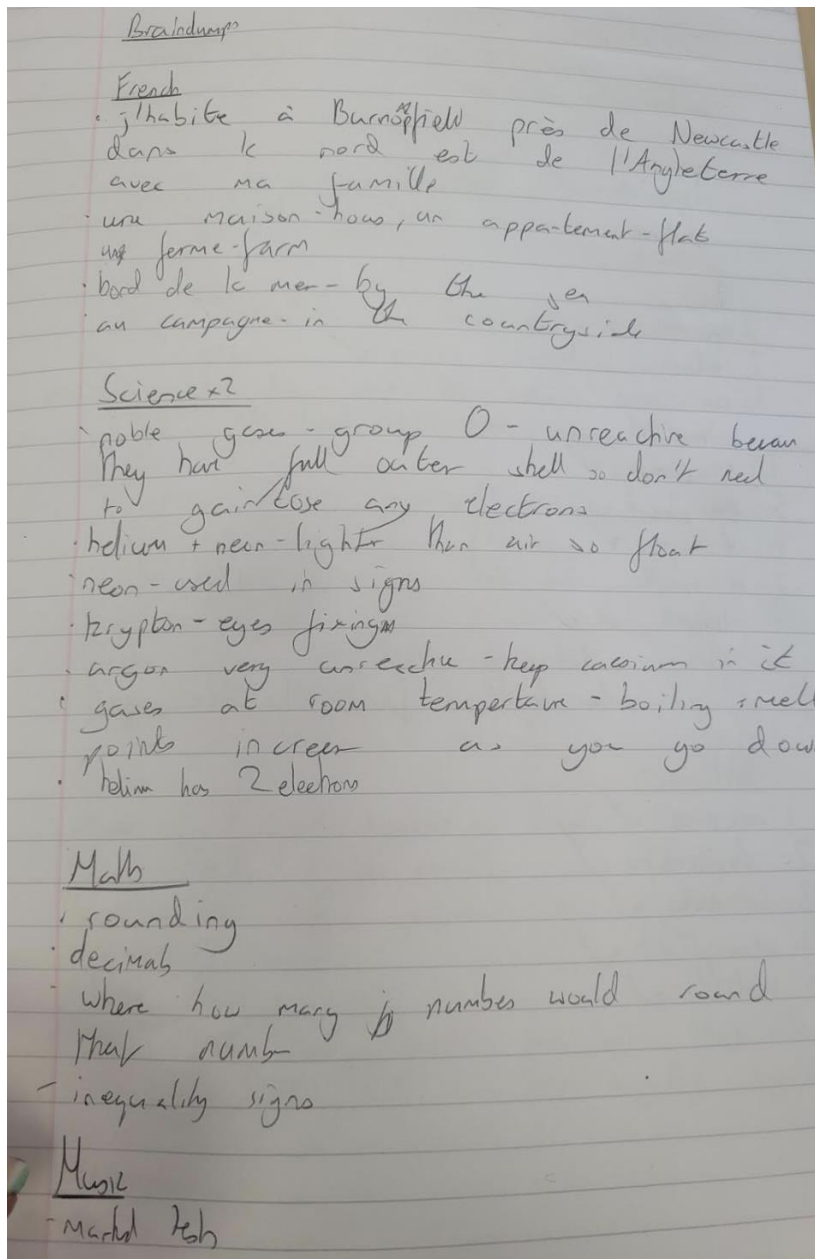 Braindumps
French
· j'habite à Burnopfield près de Newcastle
dans le nord est de l'Angleterre
avec ma famille
· une maison - hous, un appartement - flat
une ferme - farm
· bord de le mer - by the sea
au campagne - in the countryside
Science x2
· noble gases - group 0 - unreactive becau
They have full outer shell so don't need
to gain/lose any electrons
· helium + neon - lighter than air so float
· neon - used in signs
· krypton - eyes fixing
· argon very unreactive - keep in it
· gases at room tempertaure - boiling + melt
points increase as you go dow
· helium has 2 electrons
Maths
· rounding
· decimals
- where how many numbers would round
that number
- inequality signs
Music
- marked tests